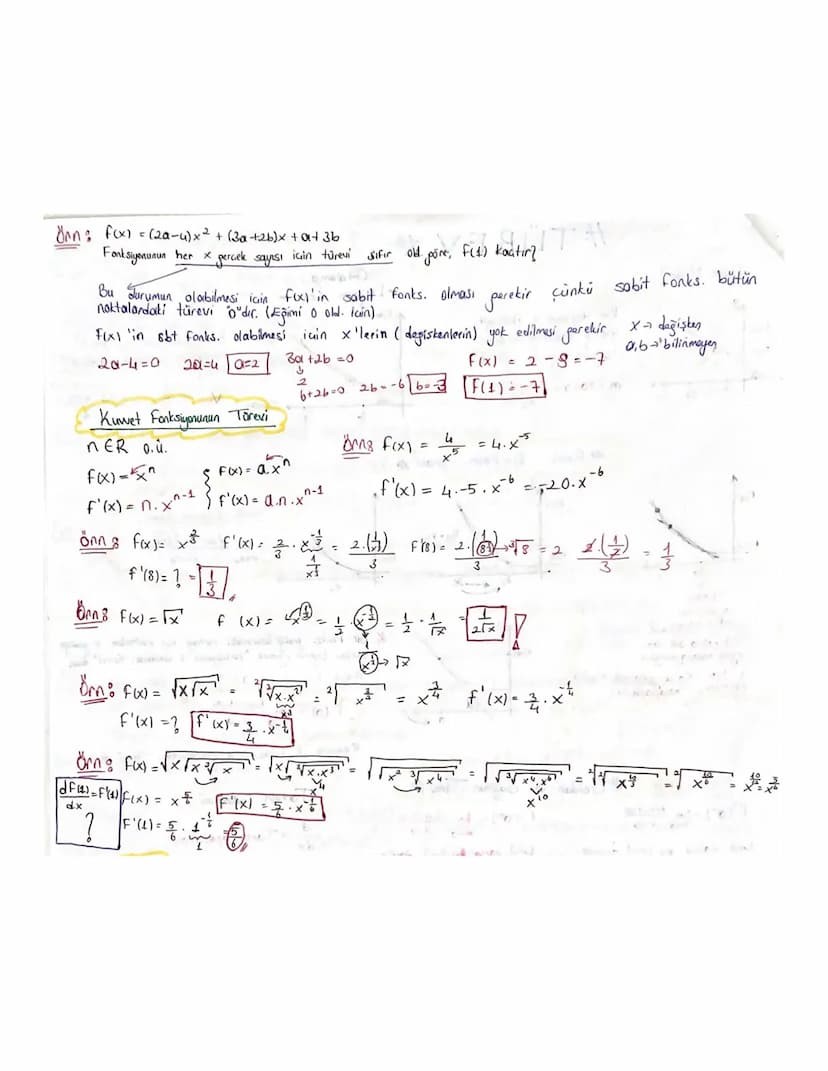 Örn: f(x) = (2a-4)x² + (3a+2b)x + a+3b
Fonksiyonunun her x gerçek sayısı için türevi sıfır old. göre, f(1) kaçtır?
Bu durumun olabilmesi için f(x)'in sabit fonks. olması gerekir çünkü sabit fonks. bütün
noktalardaki türevi "0"dır. (Eğimi 0 old. için)
f(x)'in sbt fonks. olabilmesi için x'lerin (değişkenlerin) yok edilmesi gerekir x→ değişken
a,b→ bilinmeyen
2a-4=0 2a=4 a=2 3a+2b=0 f(x) = 2 - 9 = -7
2
6+2b=0 2b=-6 b=-3 f(1) = -7
Kuvvet Fonksiyonunun Türevi
n∈R o.ü.
f(x) = x^n f(x) = a.x^n
f'(x) = n.x^(n-1) f'(x) = a.n.x^(n-1)
Örn: f(x) = 4/x⁵ = 4.x^-5
f'(x) = 4.-5.x^-6 = -20.x^-6
Örn: f(x) = x^(2/3) f'(x) = 2/3 . x^(-1/3) = 2.(1/x^(1/3))/3 f'(8) = 2.(1/8^(1/3))/3 → ³√8 = 2 2.(1/2)/3 = 1/3
1/x^(1/3)
f'(8) = ? = 1/3
Örn: f(x) = √x f (x) = x^(1/2) = 1/2 . x^(-1/2) = 1/2 . 1/√x = 1/2√x !
1/x^(1/2) → √x
Örn: f(x) = √(x√x) = ²√(²√(x.x²)) = ²√(x^(3/2)) = x^(3/4) f'(x) = 3/4 . x^(-1/4)
x³
f'(x) = ? f'(x) = 3/4 . x^(-1/4)
Örn: f(x) = √(x√(x ³√x)) = √(x√(³√(x.x³))) = √(√(x² ³√(x⁴))) = √(√(³√(x⁴.x⁶))) = ²√(²√(x^(10/3))) = ²√(x^(10/6)) = x^(10/12) = x^(5/6)
x⁴
x¹⁰
df(1)/dx = f'(1) ?
f(x) = x^(5/6) f'(x) = 5/6 . x^(-1/6)
f'(1) = 5/6 . 1^(-1/6) = 5/6
1